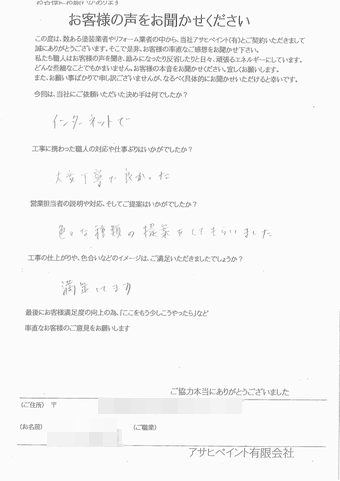 お客様の声をお聞かせください
この度は、数ある塗装業者やリフォーム業者の中から、当社アサヒペイント(有)とご契約いただきまして
誠にありがとうございます。そこで是非、お客様の率直なご感想をお聞かせ下さい。
私たち職人はお客様の声を聞き、励みになったり反省したりと日々、頑張るエネルギーにしています。
どんな些細なことでもかまいません。お客様の本音をお聞かせください。宜しくお願いします。
また、お願いばかりで申し訳ございませんが、なるべく具体的にお聞かせいただけると幸いです。
今回は、当社にご依頼いただいた決め手は何でしたか?
インターネットで
工事に携わった職人の対応や仕事ぶりはいかがでしたか?
大変丁寧で良かった
営業担当者の説明や対応、そしてご提案はいかがでしたか?
色々な種類の提案をしてもらいました
工事の仕上がりや、色合いなどのイメージは、ご満足いただきましたでしょうか?
満足してます
最後にお客様満足度の向上の為、「ここをもう少しこうやったら」など
率直なお客様のご意見をお願いします
ご協力本当にありがとうございました
(ご住所) 〒
(お名前) (ご職業)
アサヒペイント有限会社